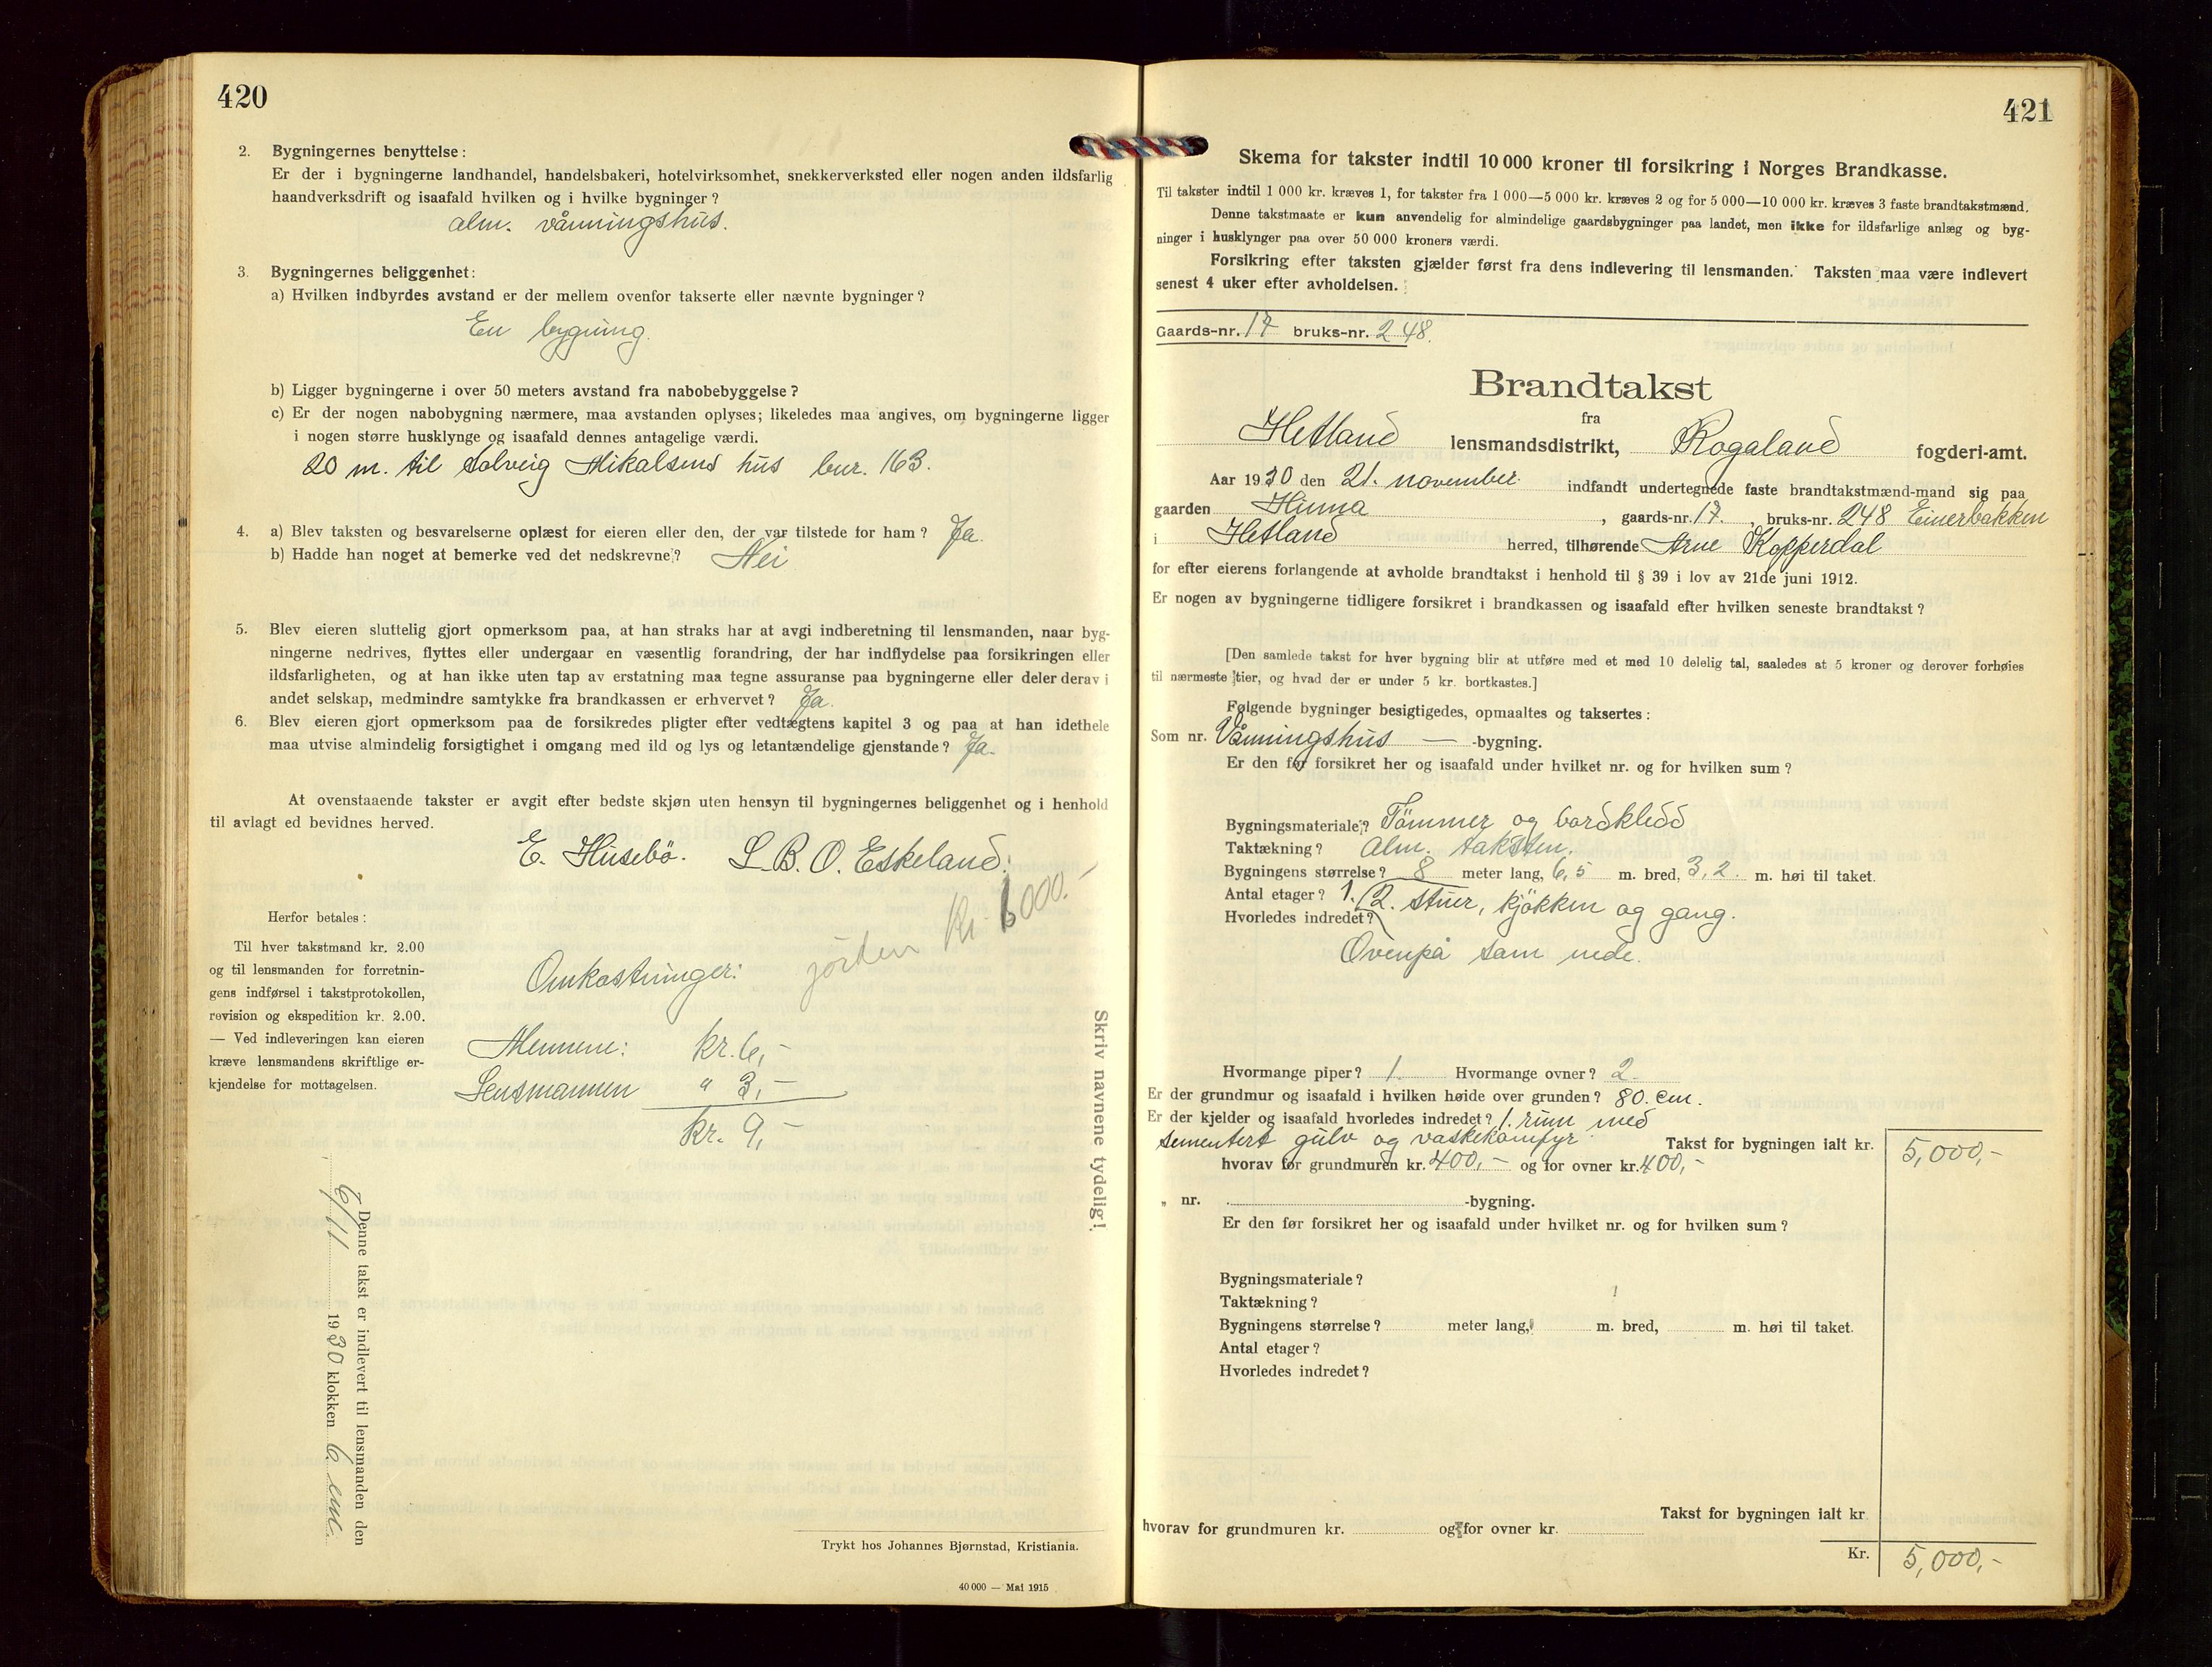 420
2. Bygningernes benyttelse:
Er der i bygningerne landhandel, handelsbakeri, hotelvirksomhet, snekkerverksted eller nogen anden ildsfarlig
haandverksdrift og isaafald hvilken og i hvilke bygninger?
alm. våningshus.
3. Bygningernes beliggenhet:
a) Hvilken indbyrdes avstand er der mellem ovenfor takserte eller nævnte bygninger?
En bygning.
b) Ligger bygningerne i over 50 meters avstand fra nabobebyggelse?
c) Er der nogen nabobygning nærmere, maa avstanden oplyses; likeledes maa angives, om bygningerne ligger
i nogen større husklynge og isaafald dennes antagelige værdi.
20 m. til Solveig Mikalsens hus bnr. 163.
4. a) Blev taksten og besvarelserne oplæst for eieren eller den, der var tilstede for ham? Ja.
b) Hadde han noget at bemerke ved det nedskrevne? Nei
5. Blev eieren sluttelig gjort opmerksom paa, at han straks har at avgi indberetning til lensmanden, naar byg-
ningerne nedrives, flyttes eller undergaar en væsentlig forandring, der har indflydelse paa forsikringen eller
ildsfarligheten, og at han ikke uten tap av erstatning maa tegne assuranse paa bygningerne eller deler derav i
andet selskap, medmindre samtykke fra brandkassen er erhvervet? Ja.
6. Blev eieren gjort opmerksom paa de forsikredes pligter efter vedtægtens kapitel 3 og paa at han idethele
maa utvise almindelig forsigtighet i omgang med ild og lys og letantændelige gjenstande? Ja.
At ovenstaaende takster er avgit efter bedste skjøn uten hensyn til bygningernes beliggenhet og i henhold
til avlagt ed bevidnes herved.
E. Husebö. L. B. O. Eskeland.
jorden kr. 6000.-
Herfor betales:
Til hver takstmand kr. 2.00
og til lensmanden for forretnin-
gens indførsel i takstprotokollen,
revision og ekspedition kr. 2.00.
— Ved indleveringen kan eieren
kræve lensmandens skriftlige er-
kjendelse for mottagelsen.
Omkostninger:
Mennene: kr. 6,-
Lensmannen " 3,-
kr. 9,-
Skriv navnene tydelig!
Denne takst er indlevert til lensmanden den
6/11 1930 klokken 6 em.
Trykt hos Johannes Bjørnstad, Kristiania.
40 000 — Mai 1915
421
Skema for takster indtil 10 000 kroner til forsikring i Norges Brandkasse.
Til takster indtil 1 000 kr. kræves 1, for takster fra 1 000—5 000 kr. kræves 2 og for 5 000—10 000 kr. kræves 3 faste brandtakstmænd.
Denne takstmaate er kun anvendelig for almindelige gaardsbygninger paa landet, men ikke for ildsfarlige anlæg og byg-
ninger i husklynger paa over 50 000 kroners værdi.
Forsikring efter taksten gjælder først fra dens indlevering til lensmanden. Taksten maa være indlevert
senest 4 uker efter avholdelsen.
Gaards-nr. 17 bruks-nr. 248.
Brandtakst
fra
Hetland lensmandsdistrikt, Rogaland fogderi-amt.
Aar 1930 den 21. november indfandt undertegnede faste brandtakstmænd-mand sig paa
gaarden Hinna, gaards-nr. 17., bruks-nr. 248 Einerbakken
i Hetland herred, tilhørende Arne Kopperdal
for efter eierens forlangende at avholde brandtakst i henhold til § 39 i lov av 21de juni 1912.
Er nogen av bygningerne tidligere forsikret i brandkassen og isaafald efter hvilken seneste brandtakst?
[Den samlede takst for hver bygning blir at utføre med et med 10 delelig tal, saaledes at 5 kroner og derover forhøies
til nærmeste tier, og hvad der er under 5 kr. bortkastes.]
Følgende bygninger besigtigedes, opmaaltes og taksertes:
Som nr. Våningshus — -bygning.
Er den før forsikret her og isaafald under hvilket nr. og for hvilken sum?
Bygningsmateriale? Tömmer og bordkledd
Taktækning? Alm. taksten.
Bygningens størrelse? 8 meter lang, 6,5 m. bred, 3,2 m. høi til taket.
Antal etager? 1.
Hvorledes indredet? 2. stuer, kjökken og gang.
Ovenpå som nede.
Hvormange piper? 1. Hvormange ovner? 2
Er der grundmur og isaafald i hvilken høide over grunden? 80. cm.
Er der kjelder og isaafald hvorledes indredet? 1. rum med
sementert gulv og vaskekomfyr Takst for bygningen ialt kr. 5,000,-
hvorav for grundmuren kr. 400,- og for ovner kr. 400,-
„ nr. -bygning.
Er den før forsikret her og isaafald under hvilket nr. og for hvilken sum?
Bygningsmateriale?
Taktækning?
Bygningens størrelse? meter lang, m. bred, m. høi til taket.
Antal etager?
Hvorledes indredet?
Takst for bygningen ialt kr
hvorav for grundmuren kr. og for ovner kr.
Kr. 5,000,-